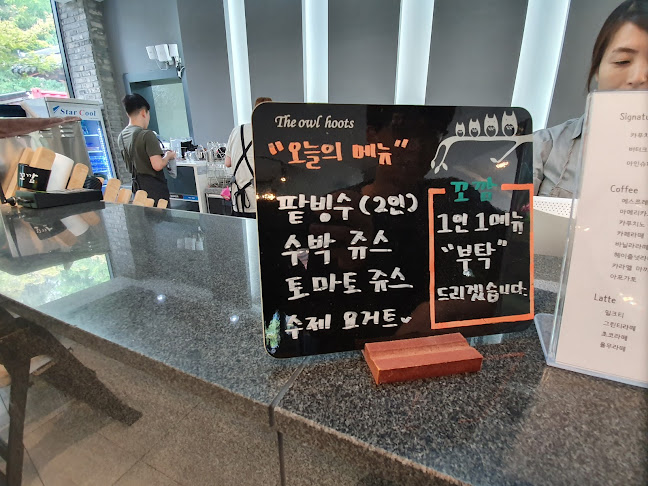 Star Cool
The owl hoots
"오늘의 메뉴"
팥빙수 (2인)
수박 쥬스
토마토 쥬스
수제 요거트
꼬깜
1인 1메뉴
"부탁"
드리겠습니다.
Signatu
카푸치
Coffee
에스프레
아메리카
카푸치노
카페라떼
바닐라라떼
헤이즐넛라
카라멜 마
아포가토
Latte
밀크티
그린티라떼
초코라떼